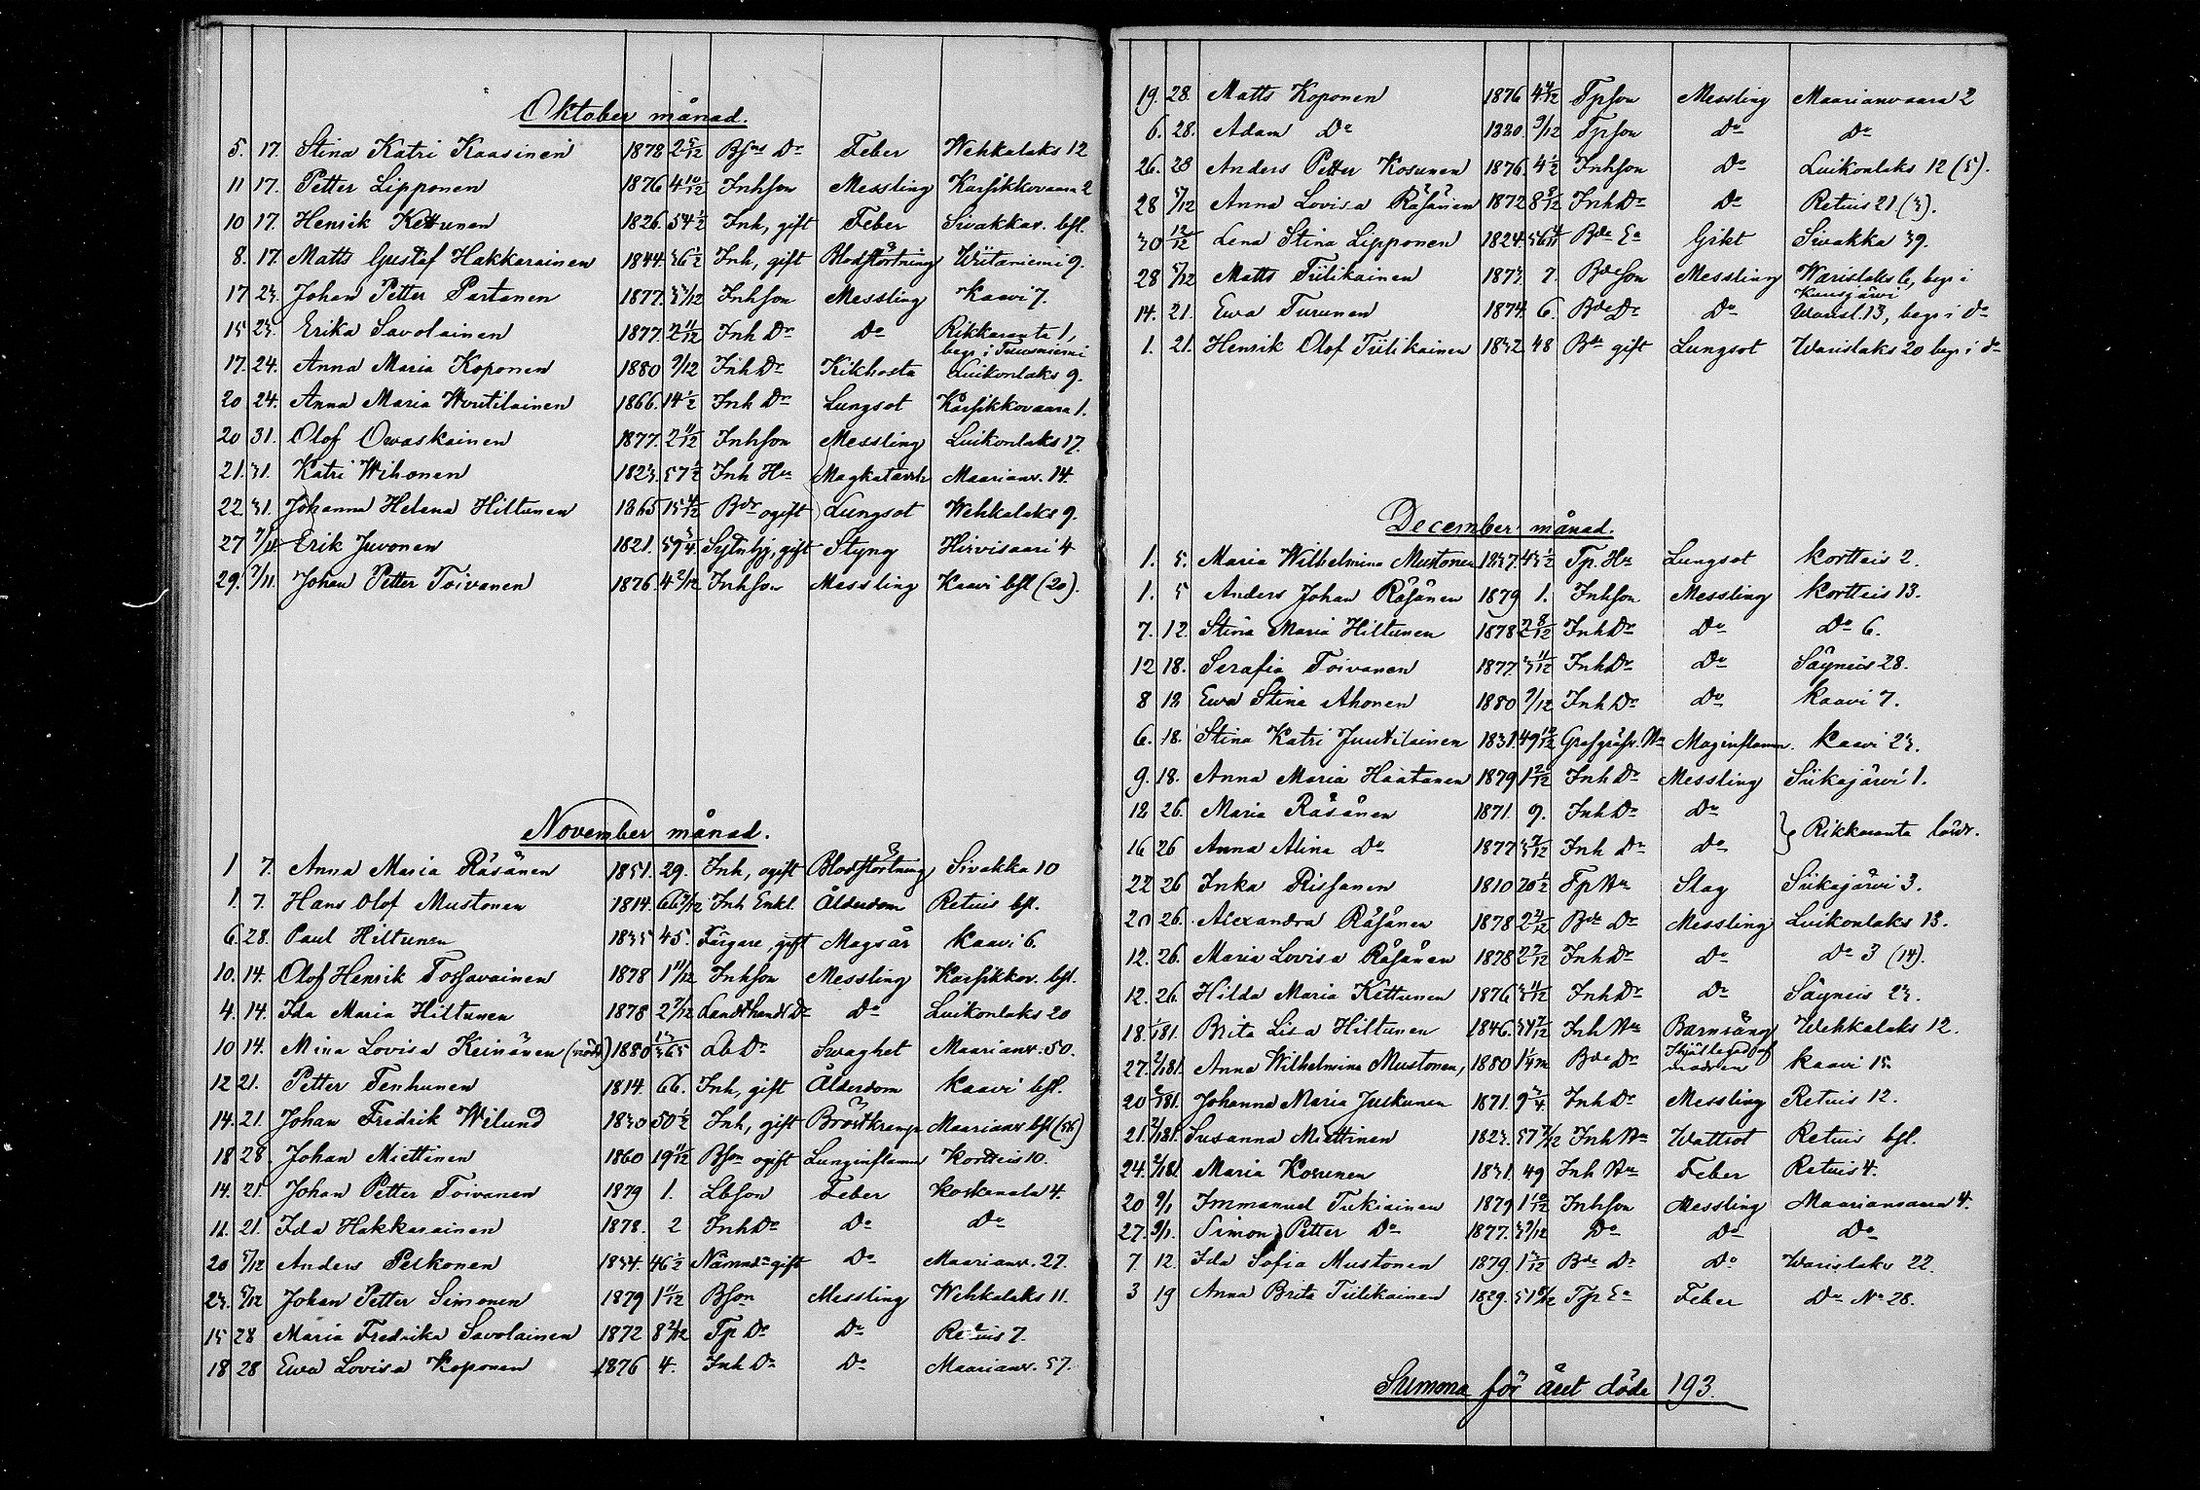 Oktober månad.
5. 17. Stina Katri Kaasinen 1878 2 5/12 Bsns Dr Feber Wehkalaks 12
11 17. Petter Lipponen 1876 4 10/12 Inhson Messling Karsikkovaara 2
10 17. Henrik Kettunen 1826. 54 1/2 Inh, gift Feber Sivakkav. bfl.
8. 17. Matts Gustaf Hakkarainen 1844. 36 1/2 Inh, gift Blodstörtning Wiitaniemi 9.
17 23. Johan Petter Partanen 1877. 3 3/12 Inhson Messling Kaavi 7.
15 23. Erika Savolainen 1877. 2 11/12 Inh Dr Do Rikkaranta 1,
begr. i Tuusniemi
17. 24. Anna Maria Koponen 1880 9/12 Inh Dr Kikhosta Luikonlaks 9.
20 24. Anna Maria Woutilainen 1866. 14 1/2 Inh Dr Lungsot Karsikkovaara 1.
20 31. Olof Owaskainen 1877. 2 11/12 Inhson Messling Luikonlaks 17.
21. 31. Katri Wihonen 1823. 57 1/2 Inh Hu Magkatarrh Maarianv. 14.
22. 31. Johanna Helena Hiltunen 1865 15 4/12 Bdr ogift Lungsot Wehkalaks 9.
27 7/11 Erik Juvonen 1821. 59 3/4 Sytnhj, gift Styng Hirvisaari 4
29. 7/11. Johan Petter Toivanen 1876. 4 2/12 Inhson Messling Kaavi bfl (20).
November månad.
1 7. Anna Maria Räsänen 1851. 29. Inh, ogift Blodstörtning Sivakka 10
1. 7. Hans Olof Mustonen 1814. 66 3/12 Inh Enkl. Ålderdom Retuis bfl.
6. 28. Paul Hiltunen 1835 45. Färgare, gift Magsår Kaavi 6.
10. 14. Olof Henrik Tossavainen 1878 1 11/12 Inhson Messling Karsikkov. bfl.
4. 14. Ida Maria Hiltunen 1878 2 7/12 Landthandl Dr Do Luikonlaks 20
10 14. Mina Lovisa Keinänen (nöd.) 1880 13/365 Lb Dr Swaghet Maarianv. 50.
12 21. Petter Tenhunen 1814. 66. Inh, gift Ålderdom Kaavi bfl.
14. 21. Johan Fredrik Wilund 1830 50 1/2 Inh, gift Bröstkramp Maarianv. bfl (56)
18 28. Johan Miettinen 1860 19 11/12 Bson ogift Lunginflamm Kortteis 10.
14. 21. Johan Petter Toivanen 1879 1. Lbson Feber Koskenala 4.
11. 21. Ida Hakkarainen 1878. 2 Inh Dr Do Do
20 5/12 Anders Pelkonen 1834. 46 1/2 Nämndn gift Do Maarianv. 27.
23. 5/12 Johan Petter Simonen 1879 1 11/12 Bson Messling Wehkalaks 11.
15 28 Maria Fredrika Savolainen 1872 8 2/12 Tp Dr Do Retuis 7.
18 28 Ewa Lovisa Koponen 1876 4. Inh Dr Do Maarianv. 57.
19. 28. Matts Koponen 1876 4 4/12 Tpson Messling Maarianvaara 2
6. 28. Adam Do 1880. 9/12 Tpson Do Do
26. 28 Anders Petter Kosunen 1876 4 1/2 Inhson Do Luikonlaks 12 (5).
28 5/12 Anna Lovisa Räsänen 1872 8 9/12 Inh Dr Do Retuis 21 (3).
30 12/12 Lena Stina Lipponen 1824. 56 Bde Ea Gikt Sivakka 39.
28 5/12 Matts Tiilikainen 1873. 7. Bdeson Messling Warislaks 6, begr i
Kuusjärvi
14. 21. Ewa Turunen 1874. 6. Bde Dr Do Warisl. 13, begr i do
1. 21. Henrik Olof Tiilikainen 1832 48 Bde gift Lungsot Warislaks 20 begr i do
December månad.
1. 5. Maria Wilhelmina Mustonen 1837. 43 1/2 Tp. Hu Lungsot Kortteis 2.
1. 5 Anders Johan Räsänen 1879 1. Inhson Messling Kortteis 13.
7. 12. Stina Maria Hiltunen 1878 2 8/12 Inh Dr Do Do 6.
12 18. Serafia Toivanen 1877. 3 11/12 Inh Dr Do Säyneis 28.
8 12 Ewa Stina Ahonen 1880 9/12 Inh Dr Do Kaavi 7.
6. 18. Stina Katri Juutilainen 1831. 49 Grafgräfv. Hu Maginflamm. Kaavi 23.
9. 18. Anna Maria Haatanen 1879 1 2/12 Inh Dr Messling Siikajärvi 1.
12 26. Maria Räsänen 1871. 9. Inh Dr Do
Rikkaranta lösdr.
16 26 Anna Alina Do 1877 Inh Dr Do
22 26 Inka Rissanen 1810 70 1/2 Tp Hu Slag Siikajärvi 3.
20 26. Alexandra Räsänen 1878 2 2/12 Bde Dr Messling Luikonlaks 13.
12. 26. Maria Lovisa Räsänen 1878 2 7/12 Inh Dr Do Do 3 (14).
12. 26 Hilda Maria Kettunen 1876 Inh Dr Do Säyneis 23.
18. 1/181. Brita Lisa Hiltunen 1846. 34 7/12 Inh Hu Barnsäng Wehkalaks 12.
27. 2/181. Anna Wilhelmina Mustonen, 1880 1 1/4 m Bde Dr Ihjällegad af
modren Kaavi 15
20 6/181. Johanna Maria Juskunen 1871. 9 3/4 Inh Dr Messling Retuis 12.
21. 2/181. Susanna Miettinen 1823. 57 7/12 Inh Hu Wattsot Retuis bfl.
24. 2/181. Maria Kosunen 1831. 49 Inh Hu Feber Retuis 4.
20 9/1 Immanuel Tukiainen 1879 1 10/12 Inhson Messling Maarianvaara 4.
27. 9/1. Simon Petter Do 1877. 3 7/12 Do Do Do
7 12. Ida Sofia Mustonen 1879. 1 Bde Dr Do Warislaks 22.
3 19 Anna Brita Tiilikainen 1829. 51 Tp Ea Feber Do No 28.
Summa för året döde 193.